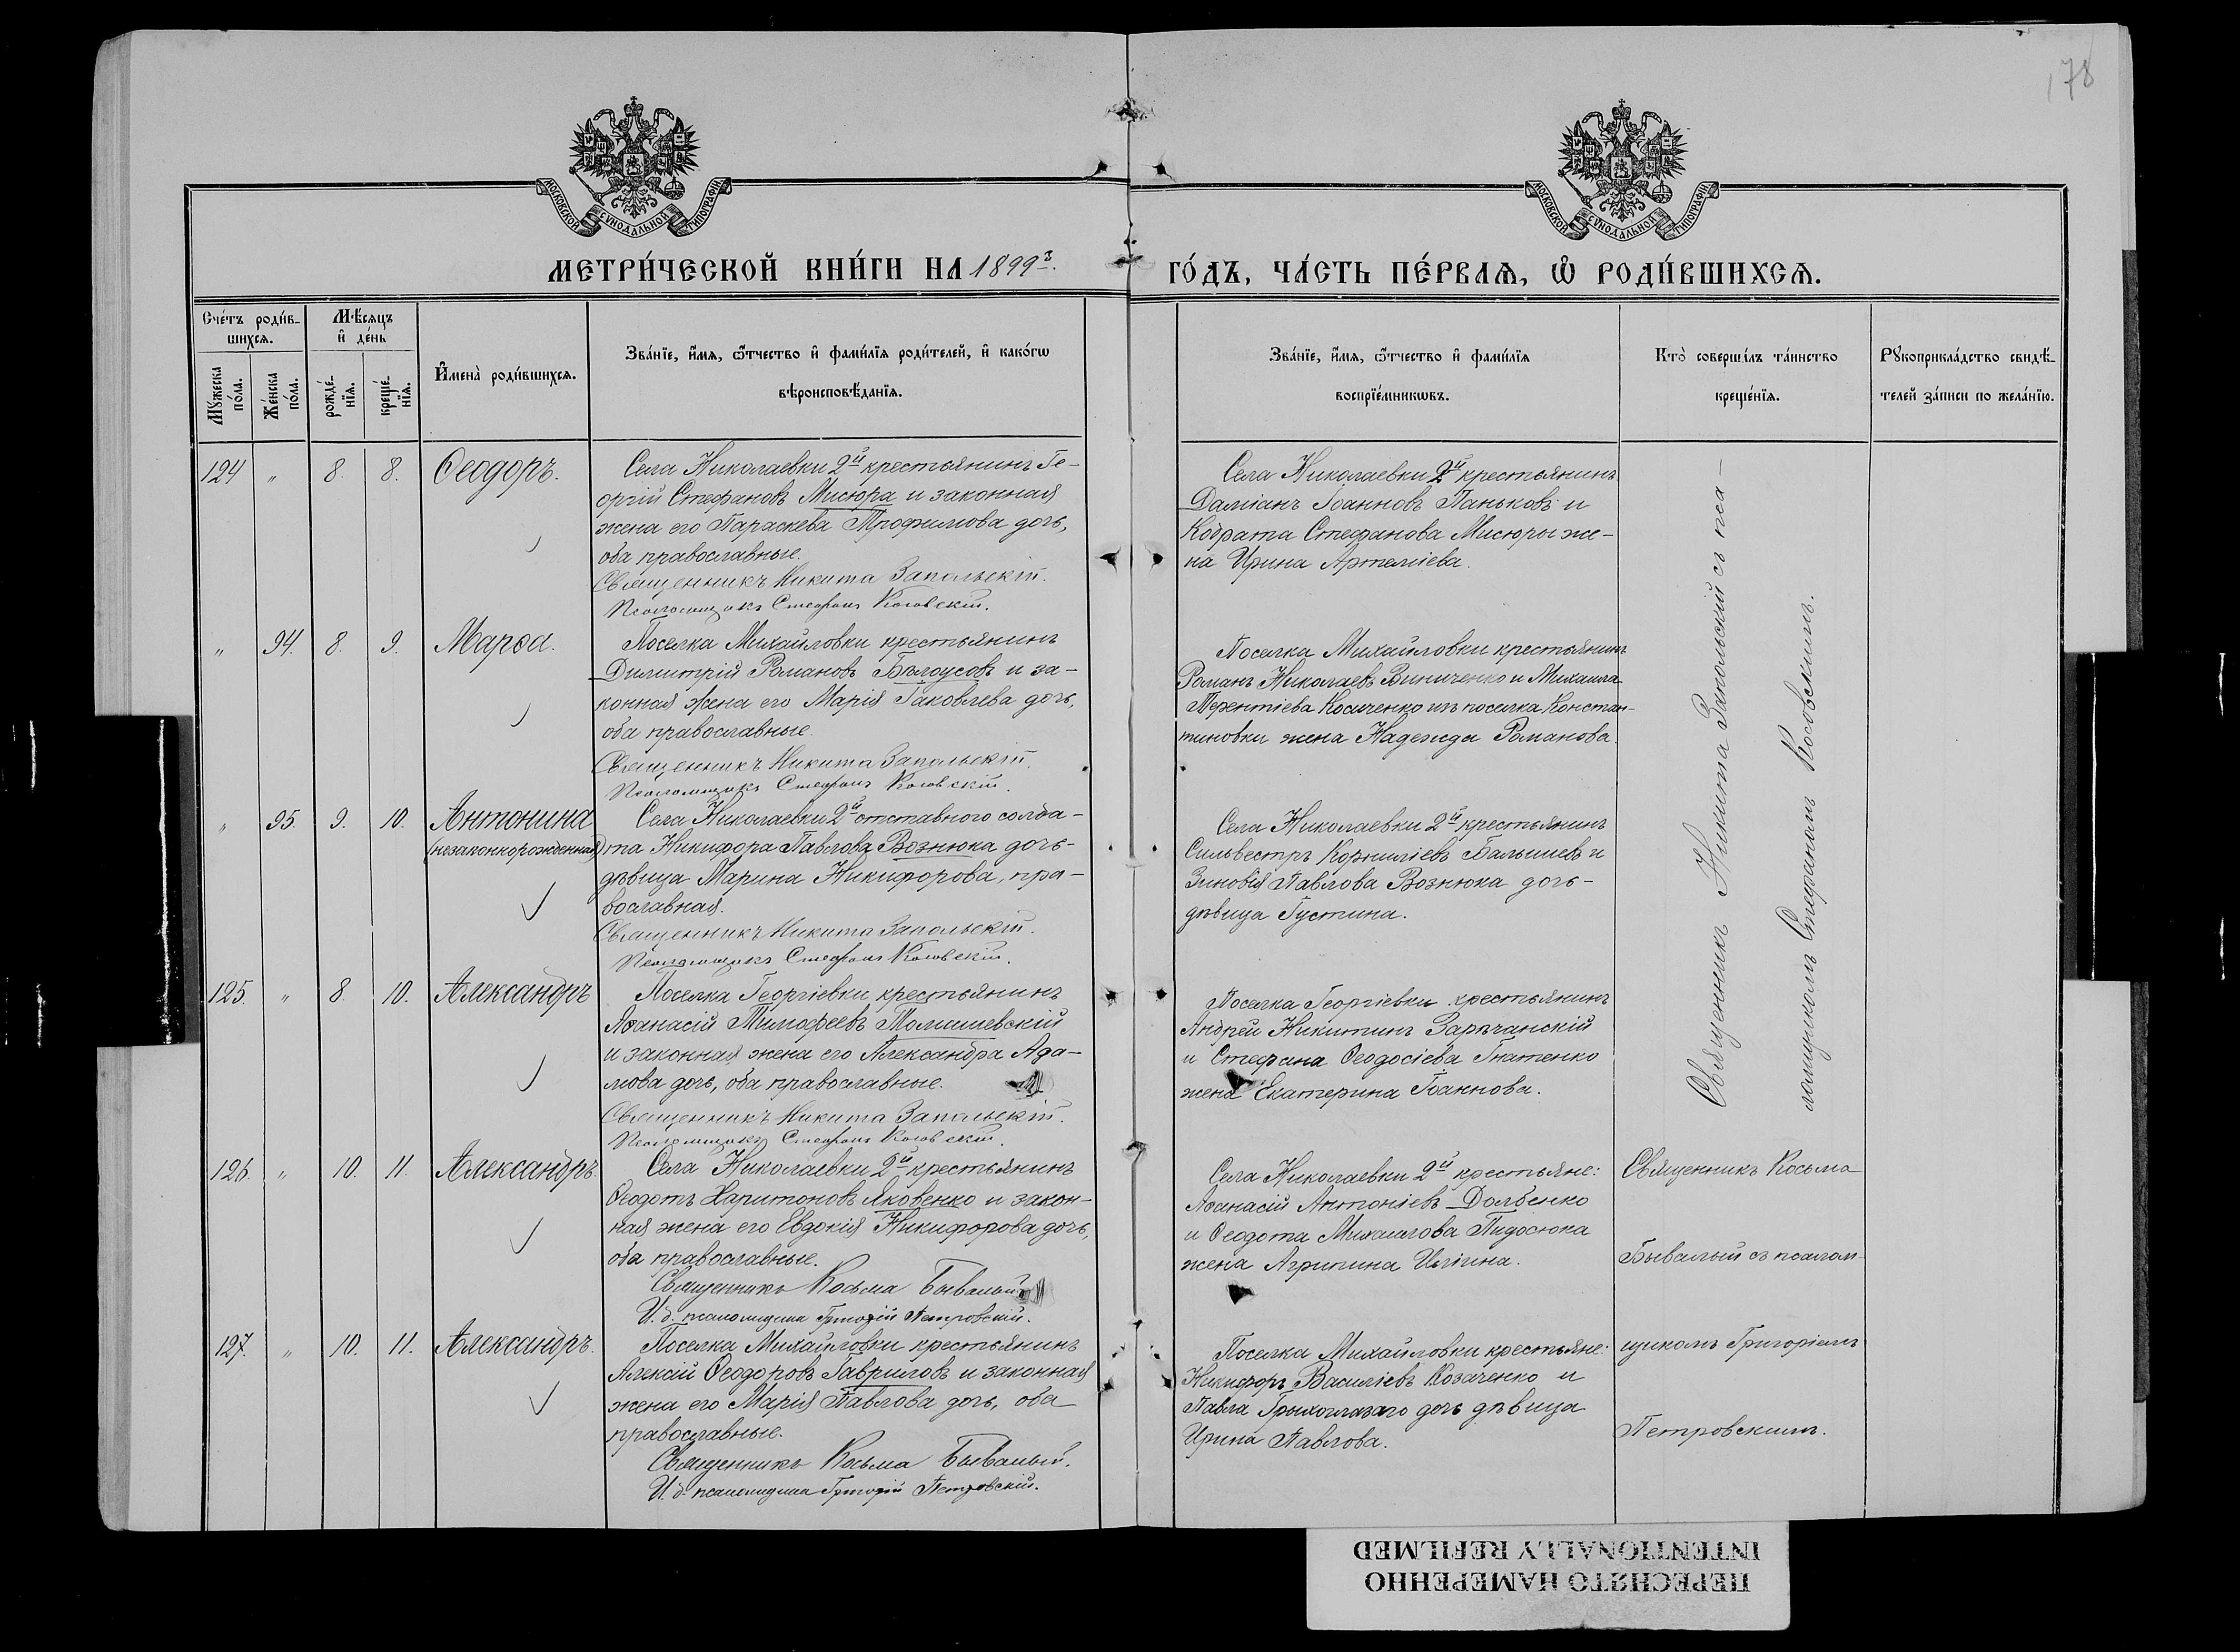 178
МОСКОВСКОЙ СѴНОДАЛЬНОЙ ТИПОГРАФІИ
МОСКОВСКОЙ СѴНОДАЛЬНОЙ ТИПОГРАФІИ
МЕТРИ́ЧЕСКОЙ КНИ́ГИ НА 1899й.
ГО́ДЪ, ЧА́СТЬ ПЕ́РВАЯ, Ѿ РОДИ́ВШИХСЯ.
Сче́тъ роди́в-
шихся.
Мѣ́сяцъ
и҆ де́нь
Мꙋ́жеска по́ла.
Же́нска по́ла.
рожде́-
нїѧ.
креще́-
нїѧ.
И҆мена̀ роди́вшихся.
Зва́нїе, и҆́мѧ, ѻ҆́тчество и҆ фами́лїѧ роди́телей, и҆ како́гѡ
вѣроисповѣ́данїѧ.
Зва́нїе, и҆́мѧ, ѻ҆́тчество и҆ фами́лїѧ
воспрїе́мникѡвъ.
Кто̀ соверша́лъ та́инство
креще́нїѧ.
Рꙋкоприкла́дство свидѣ́-
телей за́писи по жела́нїю.
124 " 8. 8. Ѳеодоръ.
Села Николаевки 2й крестьянинъ Ге-
оргій Стефановъ Мисюра и законная
жена его Параскева Трофимова дочь,
оба православные.
Священникъ Никита Запольскій.
Псаломщикъ Стефанъ Косовскій.
Села Николаевки 2й крестьянинъ
Даміанъ Іоанновъ Паньковъ и
Кодрата Стефанова Мисюры же-
на Ирина Артеміева.
" 94. 8. 9. Марѳа.
Поселка Михайловки крестьянинъ
Димитрій Романовъ Бѣлоусовъ и за-
конная жена его Марія Іаковлева дочь,
оба православные.
Священникъ Никита Запольскій.
Псаломщикъ Стефанъ Косовскій.
Поселка Михайловки крестьянинъ
Романъ Николаевъ Виниченко и Михаила
Терентіева Косиченко изъ поселка Констан-
тиновки жена Надежда Романова.
" 95. 9. 10. Антонина
(незаконнорожденная)
Села Николаевки 2й отставного солда-
та Никифора Павлова Вознюка дочь-
дѣвица Марина Никифорова, пра-
вославная.
Священникъ Никита Запольскій.
Псаломщикъ Стефанъ Косовскій.
Села Николаевки 2й крестьянинъ
Сильвестръ Корниліевъ Балышевъ и
Зиновія Павлова Вознюка дочь-
дѣвица Іустина.
125. " 8. 10. Александръ
Поселка Георгіевки крестьянинъ
Аѳанасій Тимофеевъ Томашевскій
и законная жена его Александра Ада-
мова дочь, оба православные.
Священникъ Никита Запольскій.
Псаломщикъ Стефанъ Косовскій.
Поселка Георгіевки крестьянинъ
Андрей Никитинъ Зарѣчанскій
и Стефана Ѳеодосіева Гнатенко
жена Екатерина Іоаннова.
Священникъ Никита Запольскій съ пса-
ломщикомъ Стефаномъ Косовскимъ.
126. " 10. 11. Александръ.
Села Николаевки 2й крестьянинъ
Ѳеодотъ Харитоновъ Яковенко и закон-
ная жена его Евдокія Никифорова дочь,
оба православные.
Священникъ Косьма Бывалый
И. д. псаломщика Григорій Петровскій.
Села Николаевки 2й крестьяне:
Аѳанасій Антоніевъ Долбенко
и Ѳеодота Михаилова Пидосюка
жена Агрипина Иліина.
127. " 10. 11. Александръ.
Поселка Михайловки крестьянинъ
Алексій Ѳеодоровъ Гавриловъ и законная
жена его Марія Павлова дочь, оба
православные.
Священникъ Косьма Бывалый.
И. д. псаломщика Григорій Петровскій.
Поселка Михайловки крестьяне:
Никифоръ Василіевъ Козаченко и
Павла Грыхоглазаго дочь дѣвица
Ирина Павлова.
Священникъ Косьма
Бывалый съ псалом-
щикомъ Григоріемъ
Петровскимъ.
ПЕРЕСНЯТО НАМЕРЕННО
INTENTIONALLY REFILMED